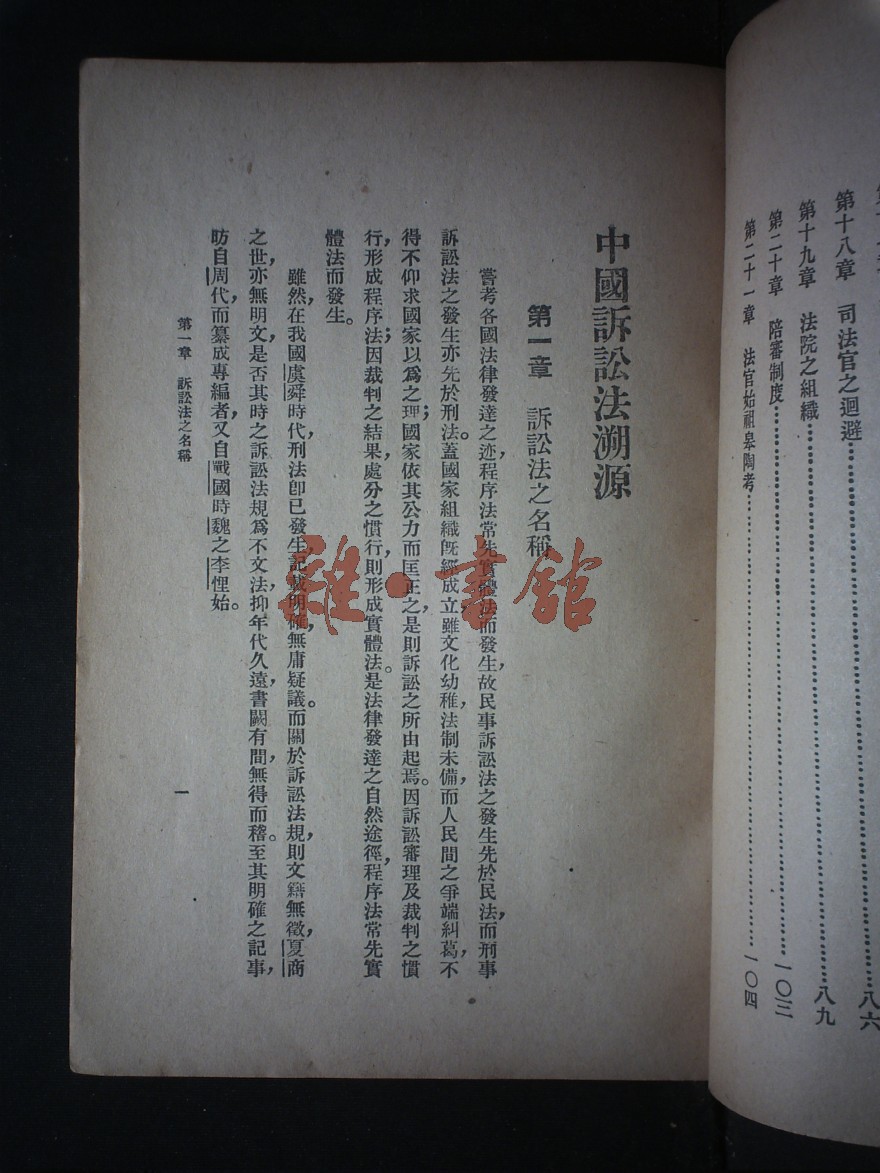 第十八章　司法官之迴避……八六
第十九章　法院之組織……八九
第二十章　陪審制度……一〇三
第二十一章　法官始祖皋陶考……一〇四
中國訴訟法溯源
第一章　訴訟法之名稱
嘗考各國法律發達之迹，程序法常先實體法而發生，故民事訴訟法之發生先於民法，而刑事
訴訟法之發生亦先於刑法。蓋國家組織旣經成立，雖文化幼稚，法制未備，而人民間之爭端糾葛，不
得不仰求國家以爲之理；國家依其公力而匡正之，是則訴訟之所由起焉。因訴訟審理及裁判之慣
行，形成程序法；因裁判之結果，處分之慣行，則形成實體法。是法律發達之自然途徑，程序法常先實
體法而發生。
雖然，在我國虞舜時代，刑法卽已發生，記載明確，無庸疑議。而關於訴訟法規，則文籍無徵，夏商
之世，亦無明文，是否其時之訴訟法規爲不文法，抑年代久遠，書闕有間，無得而稽。至其明確之記事，
昉自周代，而纂成專編者，又自戰國時魏之李悝始。
第一章　訴訟法之名稱
一
雜·書館